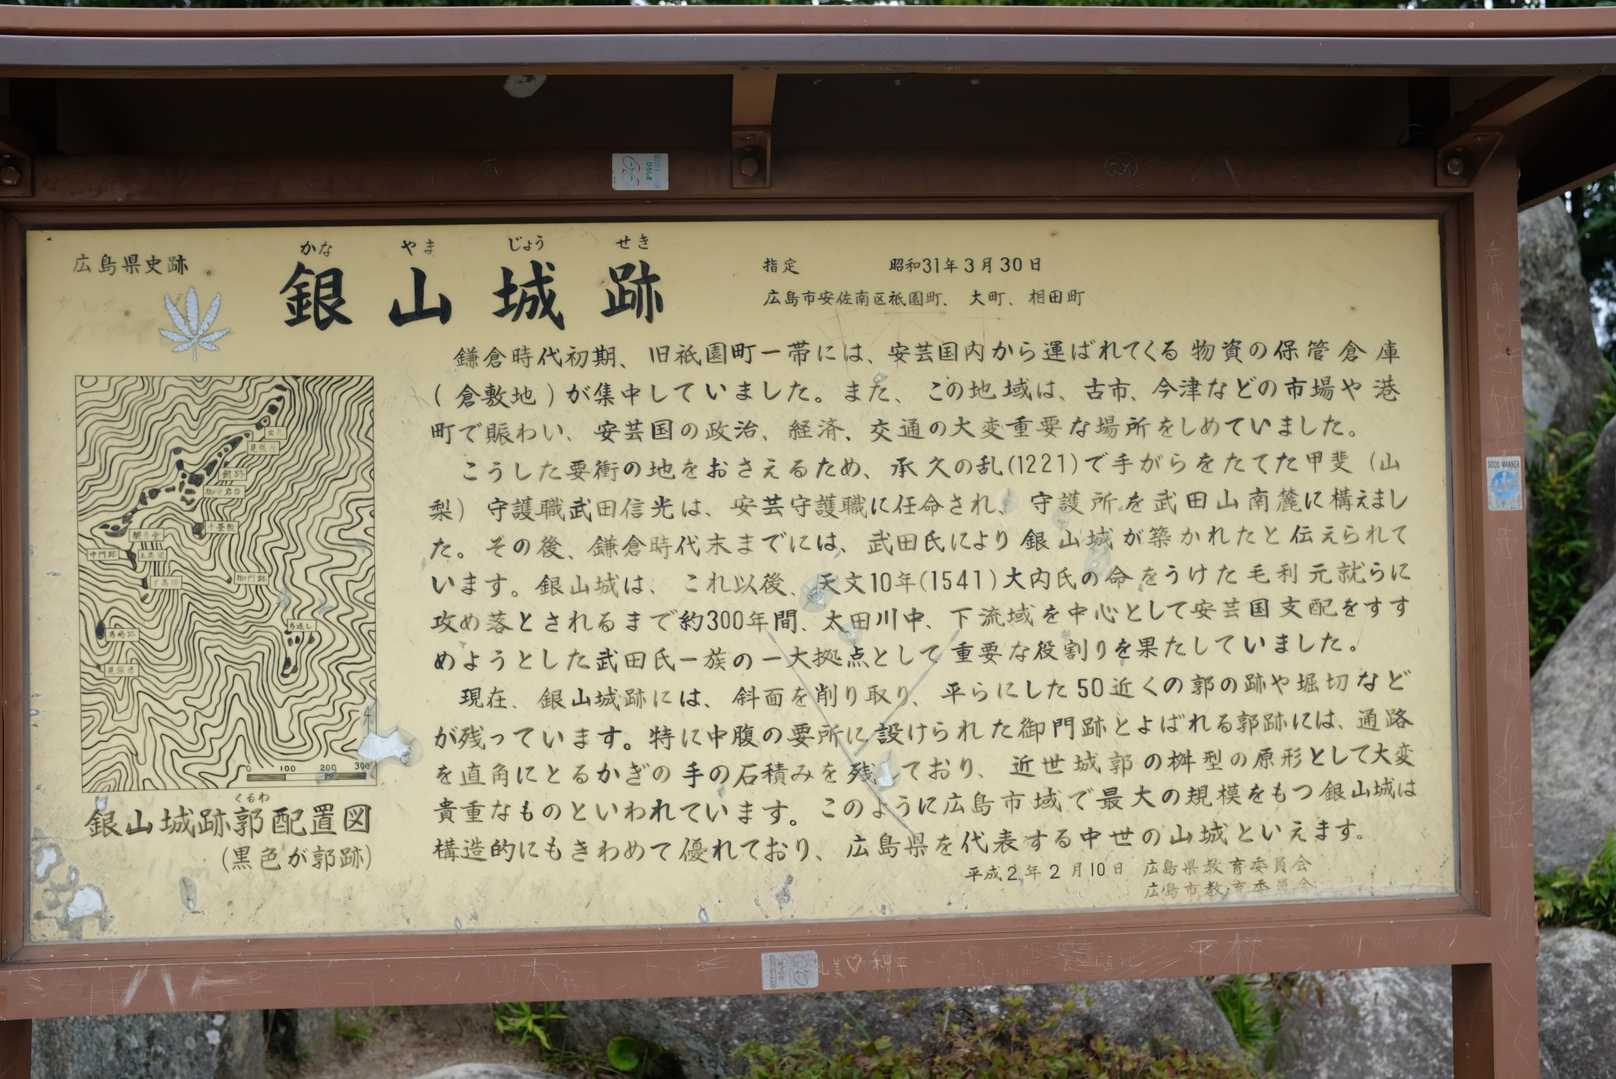 広島県史跡
かな やま じょう せき
銀山城跡
指定 昭和31年3月30日
広島市安佐南区祇園町、大町、相田町
鎌倉時代初期、旧祇園町一帯には、安芸国内から運ばれてくる物資の保管倉庫
(倉敷地)が集中していました。また、この地域は、古市、今津などの市場や港
町で賑わい、安芸国の政治、経済、交通の大変重要な場所をしめていました。
こうした要衝の地をおさえるため、承久の乱(1221)で手がらをたてた甲斐(山
梨)守護職武田信光は、安芸守護職に任命され、守護所を武田山南麓に構えまし
た。その後、鎌倉時代末までには、武田氏により銀山城が築かれたと伝えられて
います。銀山城は、これ以後、天文10年(1541)大内氏の命をうけた毛利元就らに
攻め落とされるまで約300年間、太田川中、下流域を中心として安芸国支配をすす
めようとした武田氏一族の一大拠点として重要な役割りを果たしていました。
現在、銀山城跡には、斜面を削り取り、平らにした50近くの郭の跡や堀切など
が残っています。特に中腹の要所に設けられた御門跡とよばれる郭跡には、通路
を直角にとるかぎの手の石積みを残しており、近世城郭の桝型の原形として大変
貴重なものといわれています。このように広島市域で最大の規模をもつ銀山城は
構造的にもきわめて優れており、広島県を代表する中世の山城といえます。
平成2年2月10日 広島県教育委員会
広島市教育委員会
御門跡
馬返し
0 100 200 300
くるわ
銀山城跡郭配置図
(黒色が郭跡)